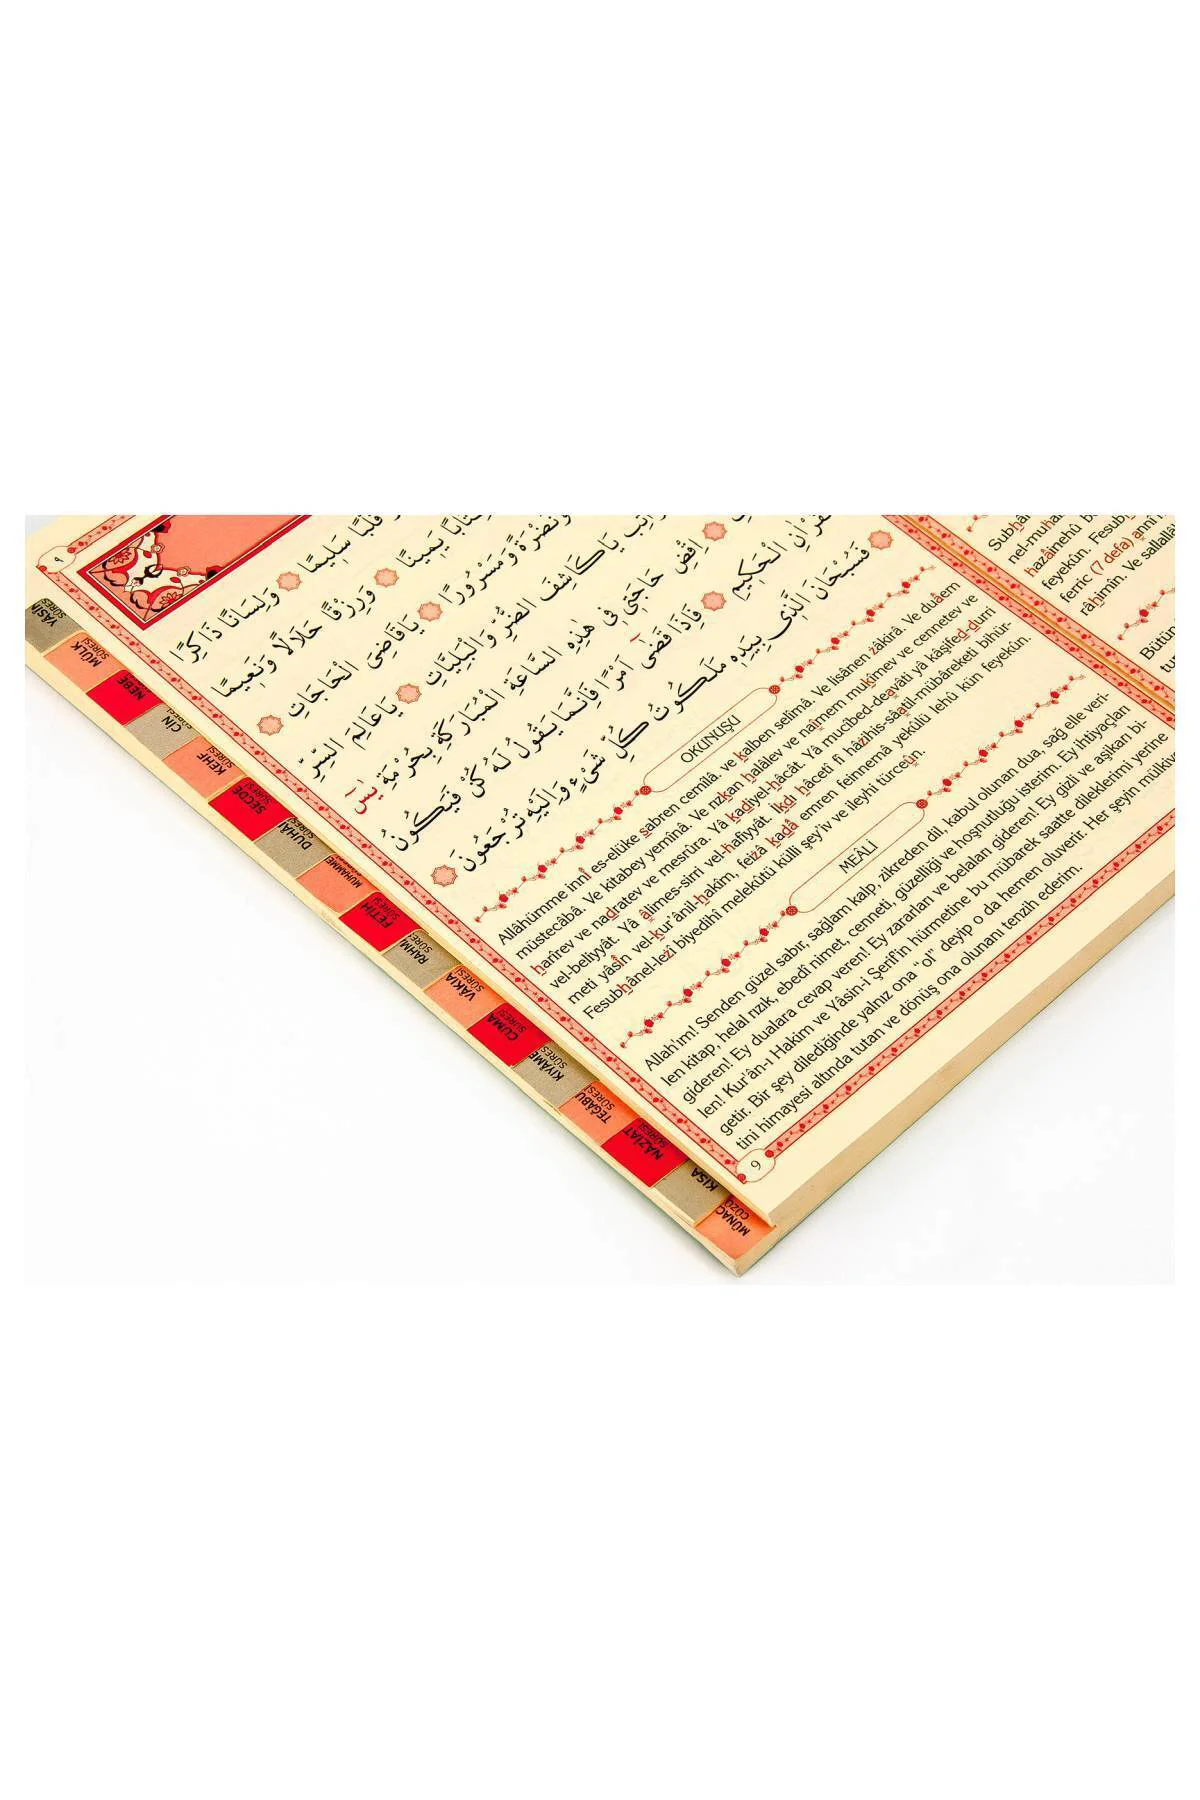 ٩
قَلْبًا سَلِيمًا ۞ وَلِسَانًا ذَاكِرًا
يَمِينًا ۞ وَرِزْقًا حَلَالًا وَنَعِيمًا
وَنَضْرَةً وَمَسْرُورًا ۞ يَا قَاضِىَ الْحَاجَاتِ ۞
يَا كَاشِفَ الضُّرِّ وَالْبَلِيَّاتِ ۞ يَا عَالِمَ السِّرِّ
اِقْضِ حَاجَتِى فِى هٰذِهِ السَّاعَةِ الْمُبَارَكَةِ بِحُرْمَةِ يٰسٓ
الْحَكِيمِ ۞ فَاِذَا قَضٰٓى اَمْرًا فَاِنَّمَا يَقُولُ لَهُ كُنْ فَيَكُونُ
۞ فَسُبْحَانَ الَّذِى بِيَدِهِ مَلَكُوتُ كُلِّ شَىْءٍ وَاِلَيْهِ تُرْجَعُونَ ۞
OKUNUŞU
Allâhümme innî es-elüke sabren cemîlâ. ve kalben selîmâ. Ve lisânen zâkirâ. Ve duâem
müstecâbâ. Ve kitabey yemînâ. Ve rızkan halâlev ve naîmem mukîmev ve cennetev ve
harîrev ve nadratev ve mesrûra. Yâ kadiyel-hâcât. Yâ mucîbed-deavâti yâ kâşifed-durri
vel-beliyyât. Yâ âlimes-sirri vel-hafiyyât. Ikdı hâcetî fî hâzihis-sâatil-mübâreketi bihür-
meti yâsîn vel-kur'ânil-hakîm, feizâ kadâ emren feinnemâ yekûlü lehû kün feyekûn.
Fesubhânel-lezî biyedihî melekûtü külli şey'iv ve ileyhi türceûn.
MEÂLİ
Allah'ım! Senden güzel sabır, sağlam kalp, zikreden dil, kabul olunan dua, sağ elle veri-
len kitap, helal rızık, ebedî nimet, cenneti, güzelliği ve hoşnutluğu isterim. Ey ihtiyaçları
gideren! Ey dualara cevap veren! Ey zararları ve belaları gideren! Ey gizli ve aşikarı bi-
len! Kur'ân-ı Hakim ve Yâsin-i Şerif'in hürmetine bu mübarek saatte dileklerimi yerine
getir. Bir şey dilediğinde yalnız ona "ol" deyip o da hemen oluverir. Her şeyin mülkiye
tini himayesi altında tutan ve dönüş ona olunanı tenzih ederim.
9
feyekûn. Fesub
ferric (7 defa) annî
râhimîn. Ve sallallâ
Bütün
YÂSİN SÛRESİ
MÜLK SÛRESİ
NEBE
CİN
KEHF SÛRESİ
SECDE SÛRESİ
DUHÂN SÛRESİ
MUHAMME
FETİH SÛRESİ
RAHM SÛRES
VÂKIA SÛRESİ
CUMA SÛRESİ
KIYÂME SÛRESİ
TEĞÂBU SÛRESİ
NÂZİÂT SÛRESİ
KISA
MÜNÂC CÜZÜ